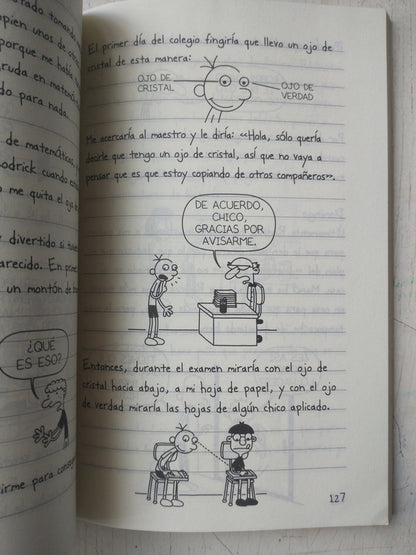 tado tomando
opien unos de otros
porque me había
ruda en matemá
do para nada.
de matemáticas,
Rodrick cuando est
me quita el ojo
divertido si tu
arecido. En prim
un montón de
¿QUÉ
ES ESO?
irme para conseg
El primer día del colegio fingiría que llevo un ojo de
cristal de esta manera:
OJO DE
CRISTAL
OJO DE
VERDAD
Me acercaría al maestro y le diría: «Hola, sólo quería
decirle que tengo un ojo de cristal, así que no vaya a
pensar que es que estoy copiando de otros compañeros».
DE ACUERDO,
CHICO,
GRACIAS POR
AVISARME.
Entonces, durante el examen miraría con el ojo de
cristal hacia abajo, a mi hoja de papel, y con el ojo
de verdad miraría las hojas de algún chico aplicado.
127